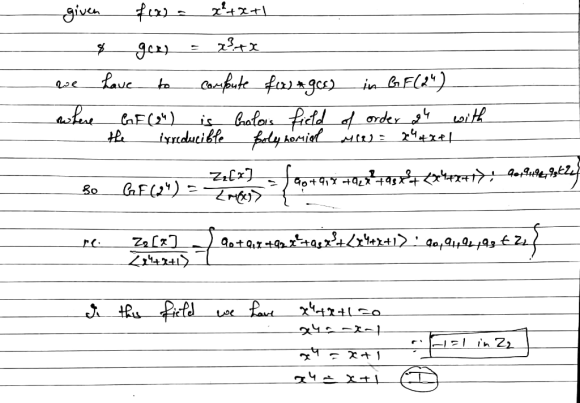 given f(x) = x²+x+1
& g(x) = x³+x
we have to compute f(x)*g(x) in GF(2⁴)
where GF(2⁴) is Galois field of order 2⁴ with
the irreducible polynomial M(x) = x⁴+x+1
so GF(2⁴) = Z₂[x] / <M(x)> = { a₀+a₁x+a₂x²+a₃x³+<x⁴+x+1> : a₀,a₁,a₂,a₃∈Z₂ }
i.e. Z₂[x] / <x⁴+x+1> = { a₀+a₁x+a₂x²+a₃x³+<x⁴+x+1> : a₀,a₁,a₂,a₃ ∈ Z₂ }
In this field we have x⁴+x+1=0
x⁴ = -x-1
x⁴ = x+1 ∵ -1=1 in Z₂
x⁴ = x+1 I